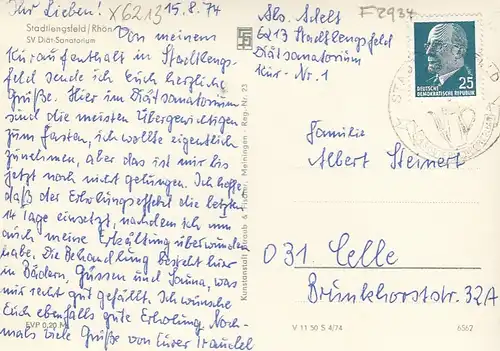 Ihr Lieben!
X6213
15.8.74
Stadtlengsfeld/Rhön
SV Diät-Sanatorium
Von meinem
Kuraufenthalt in Stadtlengs-
feld sende ich Euch herzliche
Grüße. Hier im Diätsanatorium
sind die meisten Übergewichtigen
zum fasten, ich wollte eigentlich
zunehmen, aber das ist mir bis
jetzt noch nicht gelungen. Ich hoffe
daß der Erholungseffekt die letzten
14 Tage einsetzt, nachdem ich nun
auch meine Erkältung überwunden
habe. Die Behandlung besteht hier
in Bädern, Güssen und Sauna, was
mir recht gut gefällt. Ich wünsche
Euch ebenfalls gute Erholung. Noch-
mals viele Grüße von Eurer Traudel
EVP 0,20 M
Kunstanstalt Straub & Fischer, Meiningen · Reg.-Nr. 23
Abs. Adelt
6213 Stadtlengsfeld
Diätsanatorium
Kur-Nr. 1
F2934
25
DEUTSCHE
DEMOKRATISCHE REPUBLIK
Familie
Albert Steinert
031. Celle
Brinkhorststr. 32A
V 11 50 S 4/74
6562